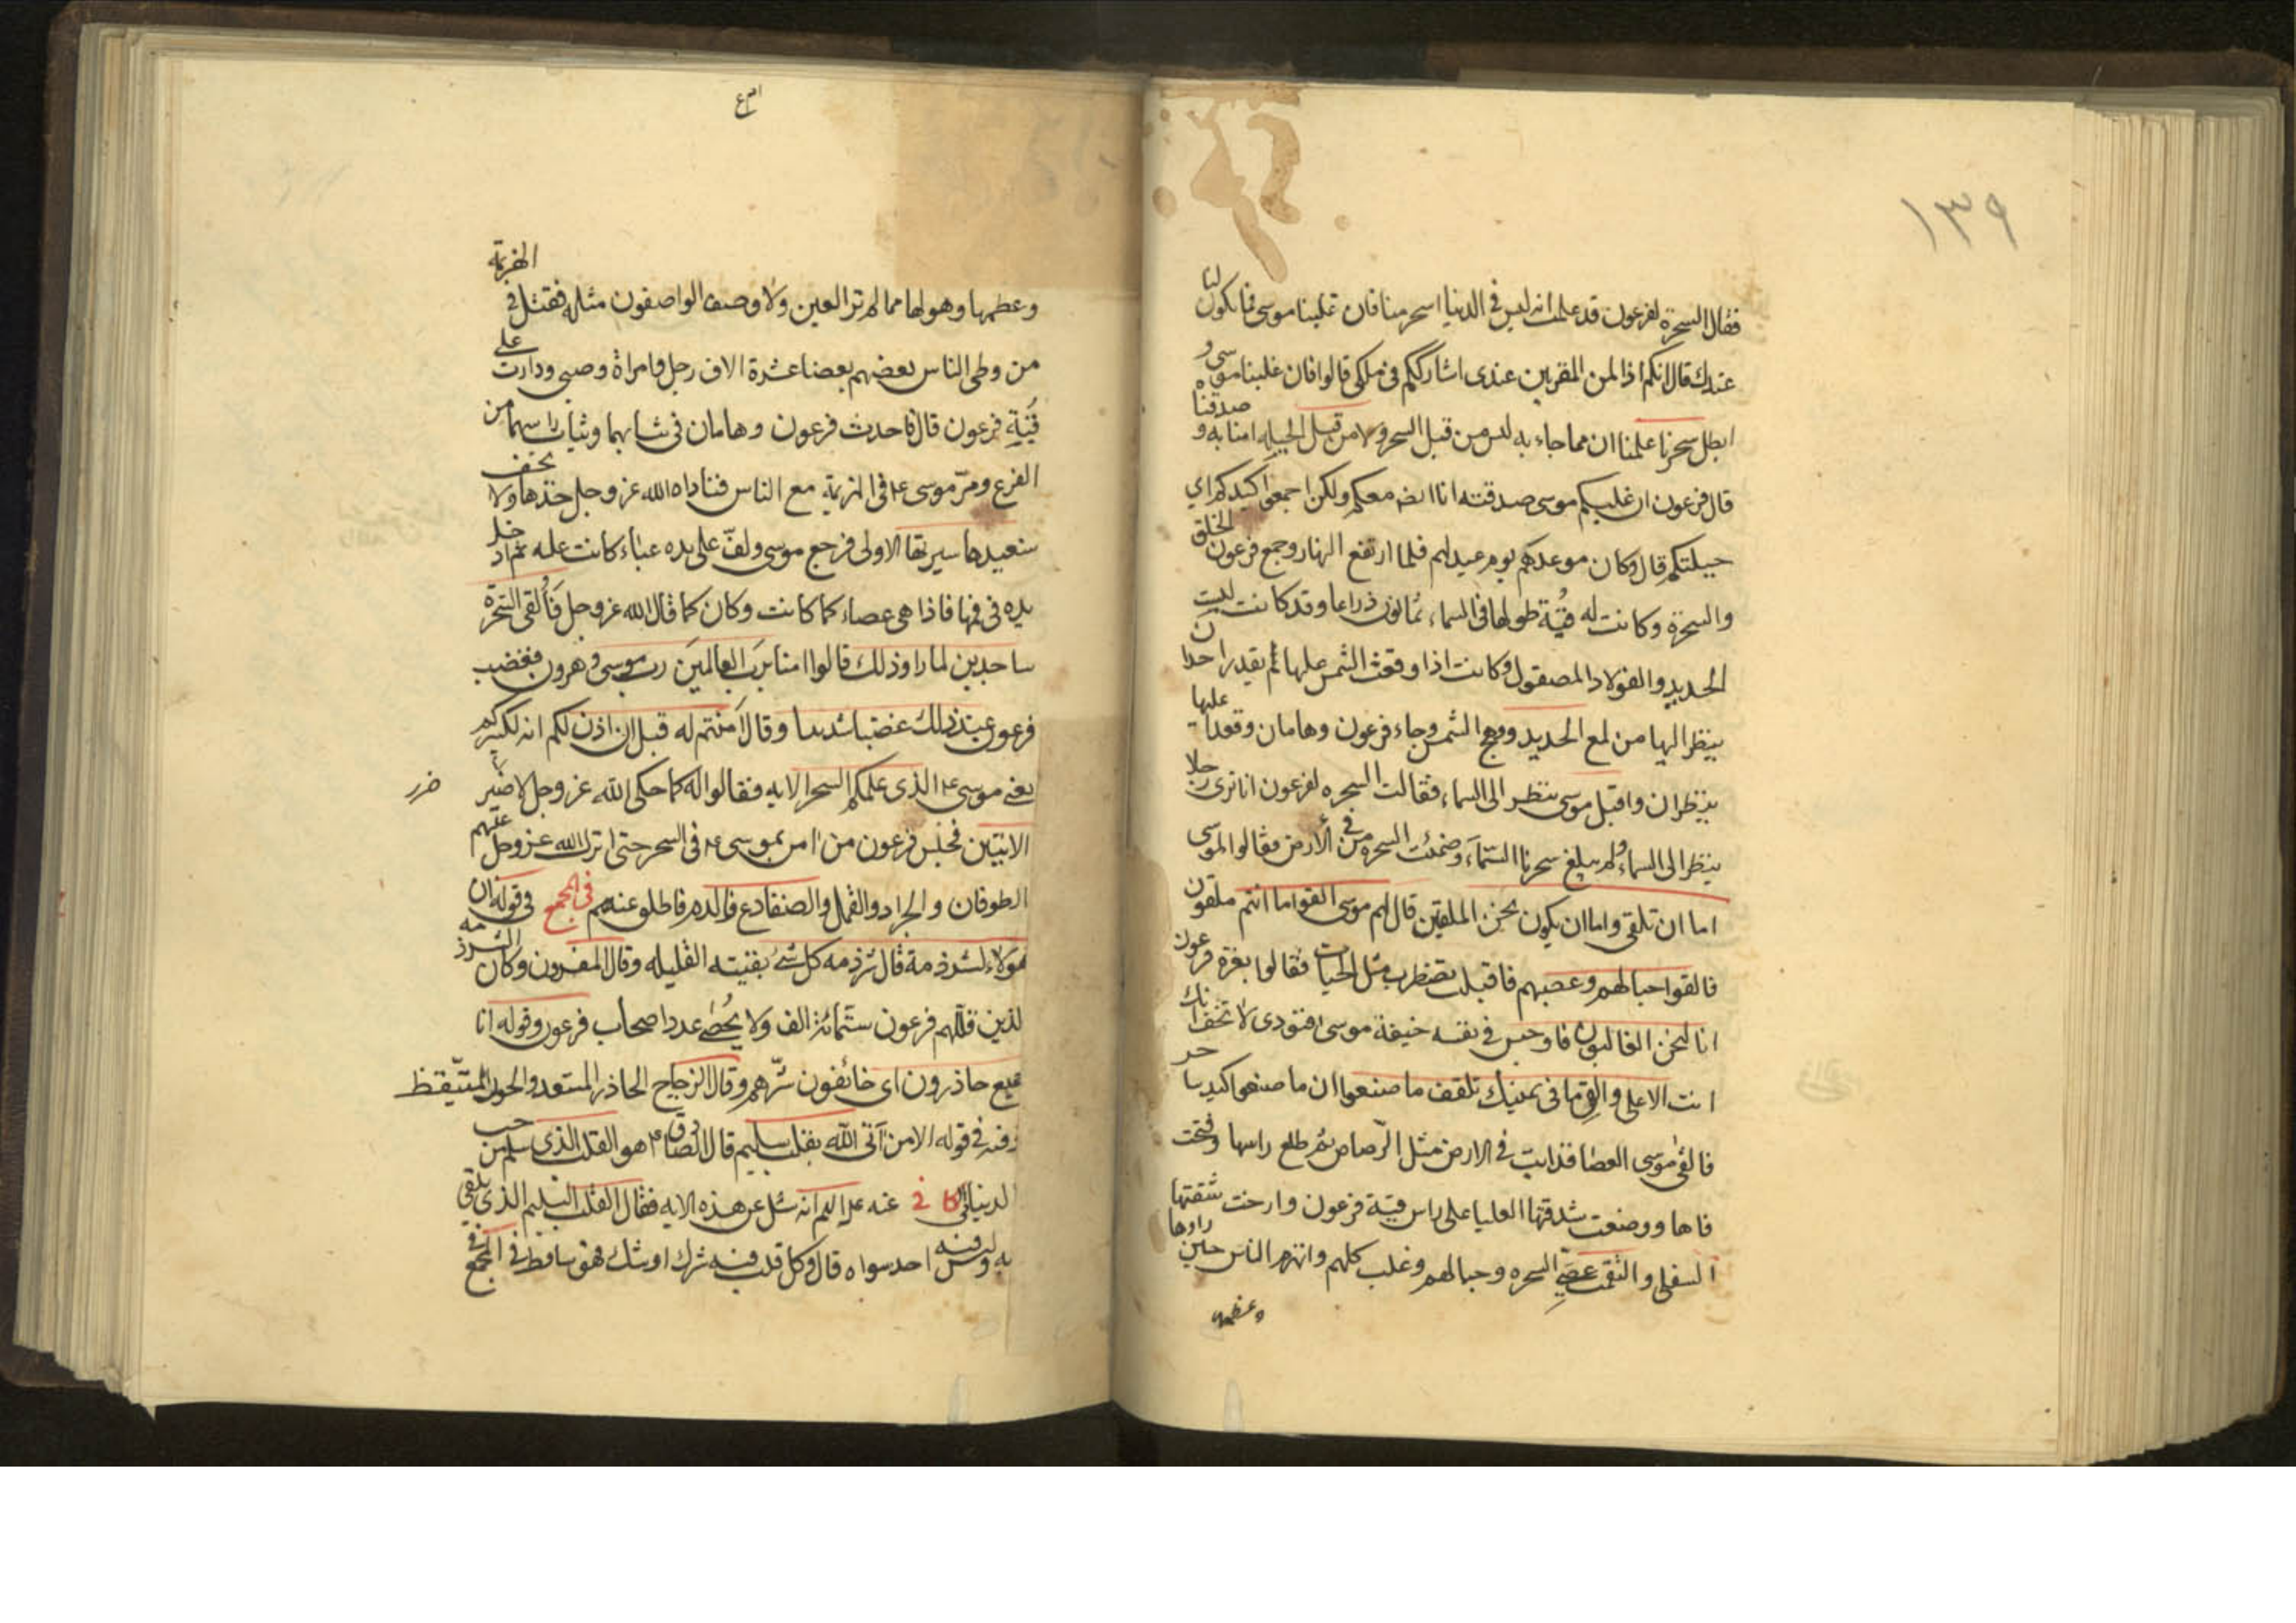 ١٣٩
فقال السحرة لفرعون قد علمت انه ليس في الدنيا اسحر منا فان غلبنا موسى فما يكون لنا
عندك قال انكم اذا لمن المقربين عندي اشارككم في ملكي قالوا فان غلبنا موسى و
ابطل سحرنا علمنا ان مما جاء به ليس من قبل السحر ولا من قبل الحيلة امنا به و صدقناه
قال فرعون ان غلبكم موسى صدقته انا ايضا معكم ولكن اجمعوا كيدكم اي
حيلتكم قال وكان موعدهم يوم عيد لهم فلما ارتفع النهار وجمع فرعون الخلق
والسحرة وكانت له قبة طولها في السماء ثمانون ذراعا وقد كانت لبست
الحديد والفولاد المصقول وكانت اذا وقعت الشمس عليها لم يقدر احد ان
ينظر اليها من لمع الحديد ووهج الشمس وجاء فرعون وهامان وقعدا عليها
ينظران واقبل موسى ينظر الى السماء فقالت السحره لفرعون انا نرى رجلا
ينظر الى السماء ولم يبلغ سحرنا السماء وضمنت السحره من في الارض فقالوا لموسى
اما ان تلقي واما ان يكون نحن الملقين قال لهم موسى القوا ما انتم ملقون
فالقوا حبالهم وعصيهم فاقبلت تضطرب مثل الحيات فقالوا بعزة فرعون
انا لنحن الغالبون فاوجس في نفسه خيفة موسى فنودي لا تخف انك
انت الاعلى والق ما في يمينك تلقف ما صنعوا ان ما صنعوا كيد ساحر
فالقى موسى العصا فذابت في الارض مثل الرصاص ثم طلع راسها وفتحت
فاها ووضعت شدقها العليا على راس قبة فرعون وارخت شفتها
السفلى والتقمت عصي السحره وحبالهم وغلب كلهم وانهزم الناس حين راوها
وعظمها
وعظمها وهولها مما لم تر العين ولا وصف الواصفون مثله فقتل في الهزيمة
من وطي الناس بعضهم بعضا عشرة الاف رجل وامراة وصبي ودارت على
قبة فرعون قال فاحدث فرعون وهامان في ثيابهما وشاب راسهما من
الفزع ومر موسى ع في الهزيمة مع الناس فناداه الله عز وجل خذها ولا تخف
سنعيدها سيرتها الاولى فرجع موسى ولف على يده عباء كانت عليه ثم ادخل
يده في فمها فاذا هي عصاء كما كانت وكان كما قال الله عز وجل فالقي السحرة
ساجدين لما راوا ذلك قالوا امنا برب العالمين رب موسى وهرون فغضب
فرعون عند ذلك غضبا شديدا وقال آمنتم له قبل ان اذن لكم انه لكبيركم
يعني موسى ع الذي علمكم السحر الايه فقالوا له كما حكى الله عز وجل لا ضير
ضرر
الايتين فحبس فرعون من امن بموسى ع في السحر حتى انزل الله عز وجل عليهم
الطوفان والجراد والقمل والضفادع والدم فاطلق عنهم في المجمع في قوله ان
هؤلاء لشرذمة قال شرذمة كل شئ بقيته القليله وقال المفسرون وكان الشرذمة
الذين قللهم فرعون ستمائة الف ولا يحصى عدد اصحاب فرعون وقوله انا
لجميع حاذرون اي خائفون شرهم وقال الزجاج الحاذر المستعد والحذر المتيقظ
وفيه في قوله الا من اتى الله بقلب سليم قال الصادق ع هو القلب الذي سلم من حب
الدنيا الكافي عنه عليه السلام انه سئل عن هذه الايه فقال القلب السليم الذي يلقى
ربه وليس فيه احد سواه قال وكل قلب فيه شرك او شك فهو ساقط في المجمع